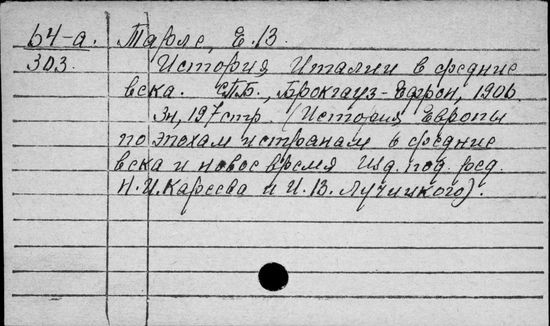 64-а. Тарле, Е.В.
303.
История Италии в средние
века. СПБ., Брокгауз-Ефрон, 1906.
3н, 197 стр. (История Европы
по эпохам и странам в средние
века и новое время Изд. под. ред.
Н.И. Кареева и И.В. Лучицкого).